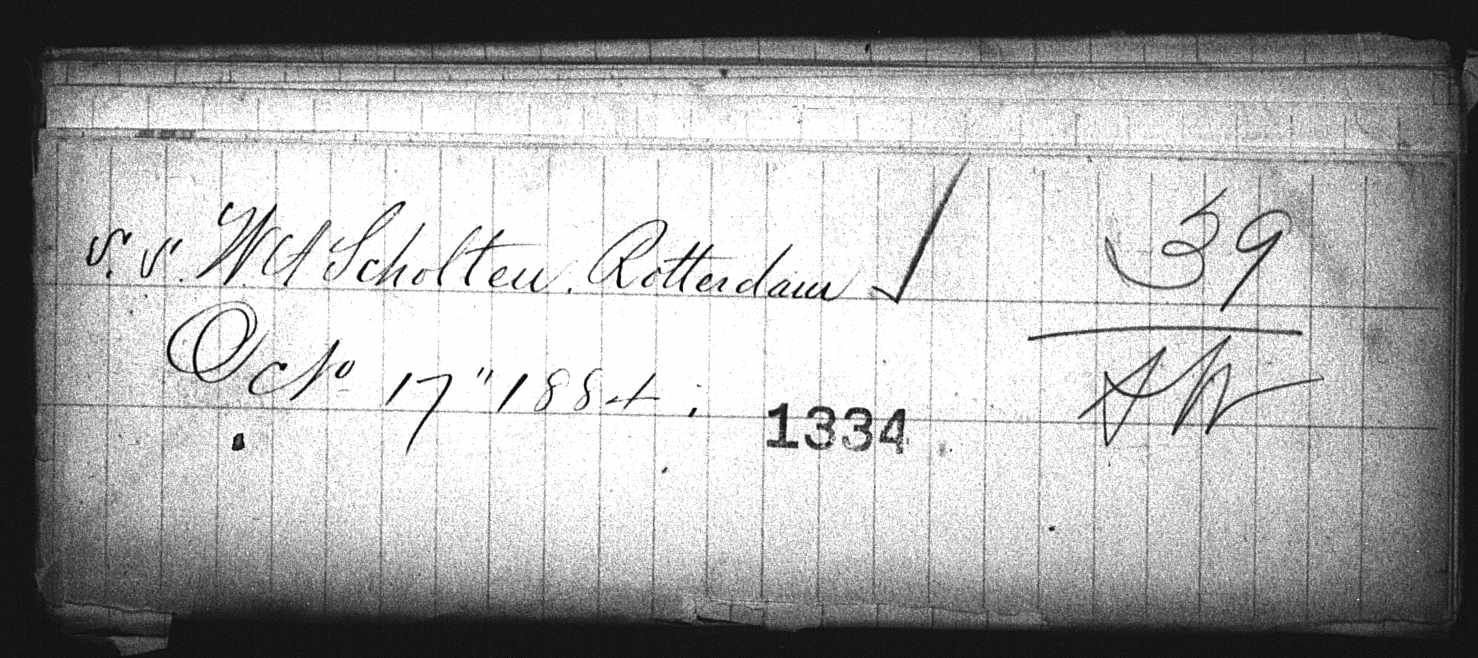 S. S. W. A Scholten. Rotterdam
39
Octo 17" 1884.
1334